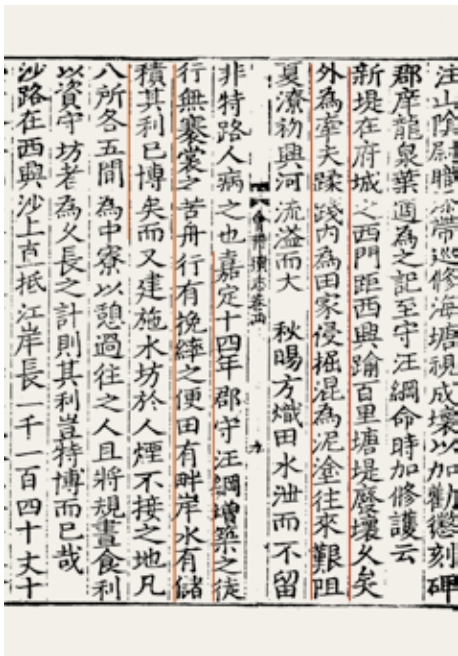 汪山陰尉職添帶巡修海塘視成壞以加勸懲刻碑
郡庠龍泉葉適為之記至守汪綱命時加修護云
新堤在府城之西門距西興踰百里塘堤廢壞久矣
外為牽夫蹂踐內為田家侵掘混為泥塗往來艱阻
夏潦初興河流溢而大 秋暘方熾田水泄而不留
會稽續志卷四 九
非特路人病之也嘉定十四年郡守汪綱增築之徒
行無褰裳之苦舟行有挽繂之便田有畔岸水有儲
積其利已博矣而又建施水坊於人煙不接之地凡
八所各五間為中寮以憩過往之人且將規畫食利
以資守坊者為久長之計則其利豈特博而已哉
沙路在西興沙上直抵江岸長一千一百四十丈十